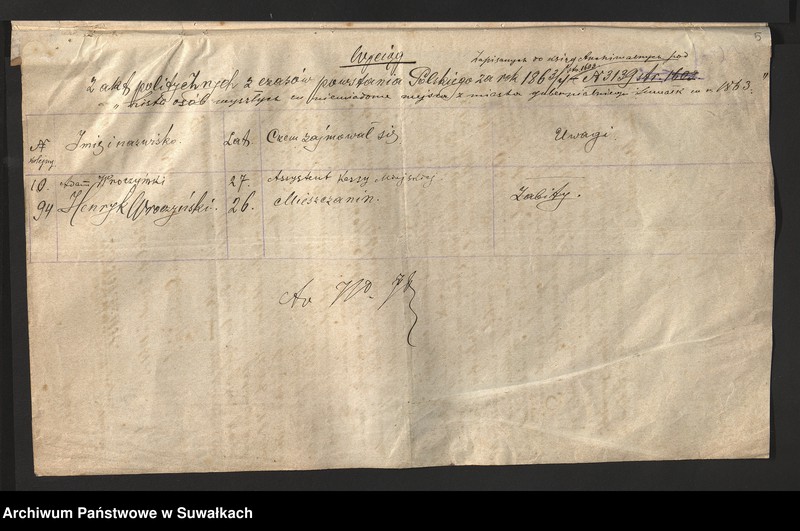 5
Wyciąg
zapisanych do ksiąg Archiwalnych pod
str. 1603
z akt politycznych z czasów powstania Polskiego za rok 1863/4 N 3139 str. 1603
"Lista osób wyszłych w niewiadome miejsca z miasta gubernialnego Suwałk w r. 1863."
N kolejny. Imię i nazwisko. Lat. Czem zajmował się. Uwagi.
10. Adam Wroczyński 27. Assystent Kassy Miejskiej
94 Henryk Wroczyński. 26. Mieszczanin. Zabity.
Archiwum Państwowe w Suwałkach